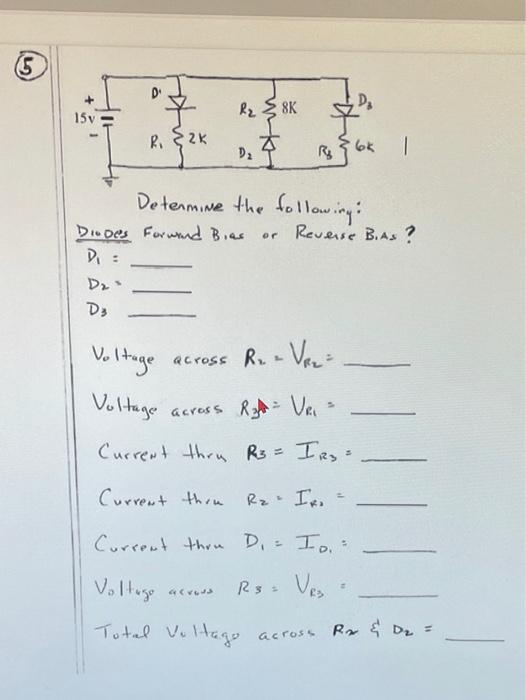 5
D1
R2 8K
D3
+
15v
-
R1 2K
D2
R3 6K
Determine the following:
Diodes Forward Bias or Reverse BiAs?
D1 = ____
D2 = ____
D3 ____
Voltage across R2 = VR2 = ____
Voltage across = VR1 = ____
Current thru R3 = IR3 = ____
Current thru R2 = IR2 = ____
Current thru D1 = ID1 = ____
Voltage across R3 = VR3 = ____
Total Voltage across R2 & D2 = ____